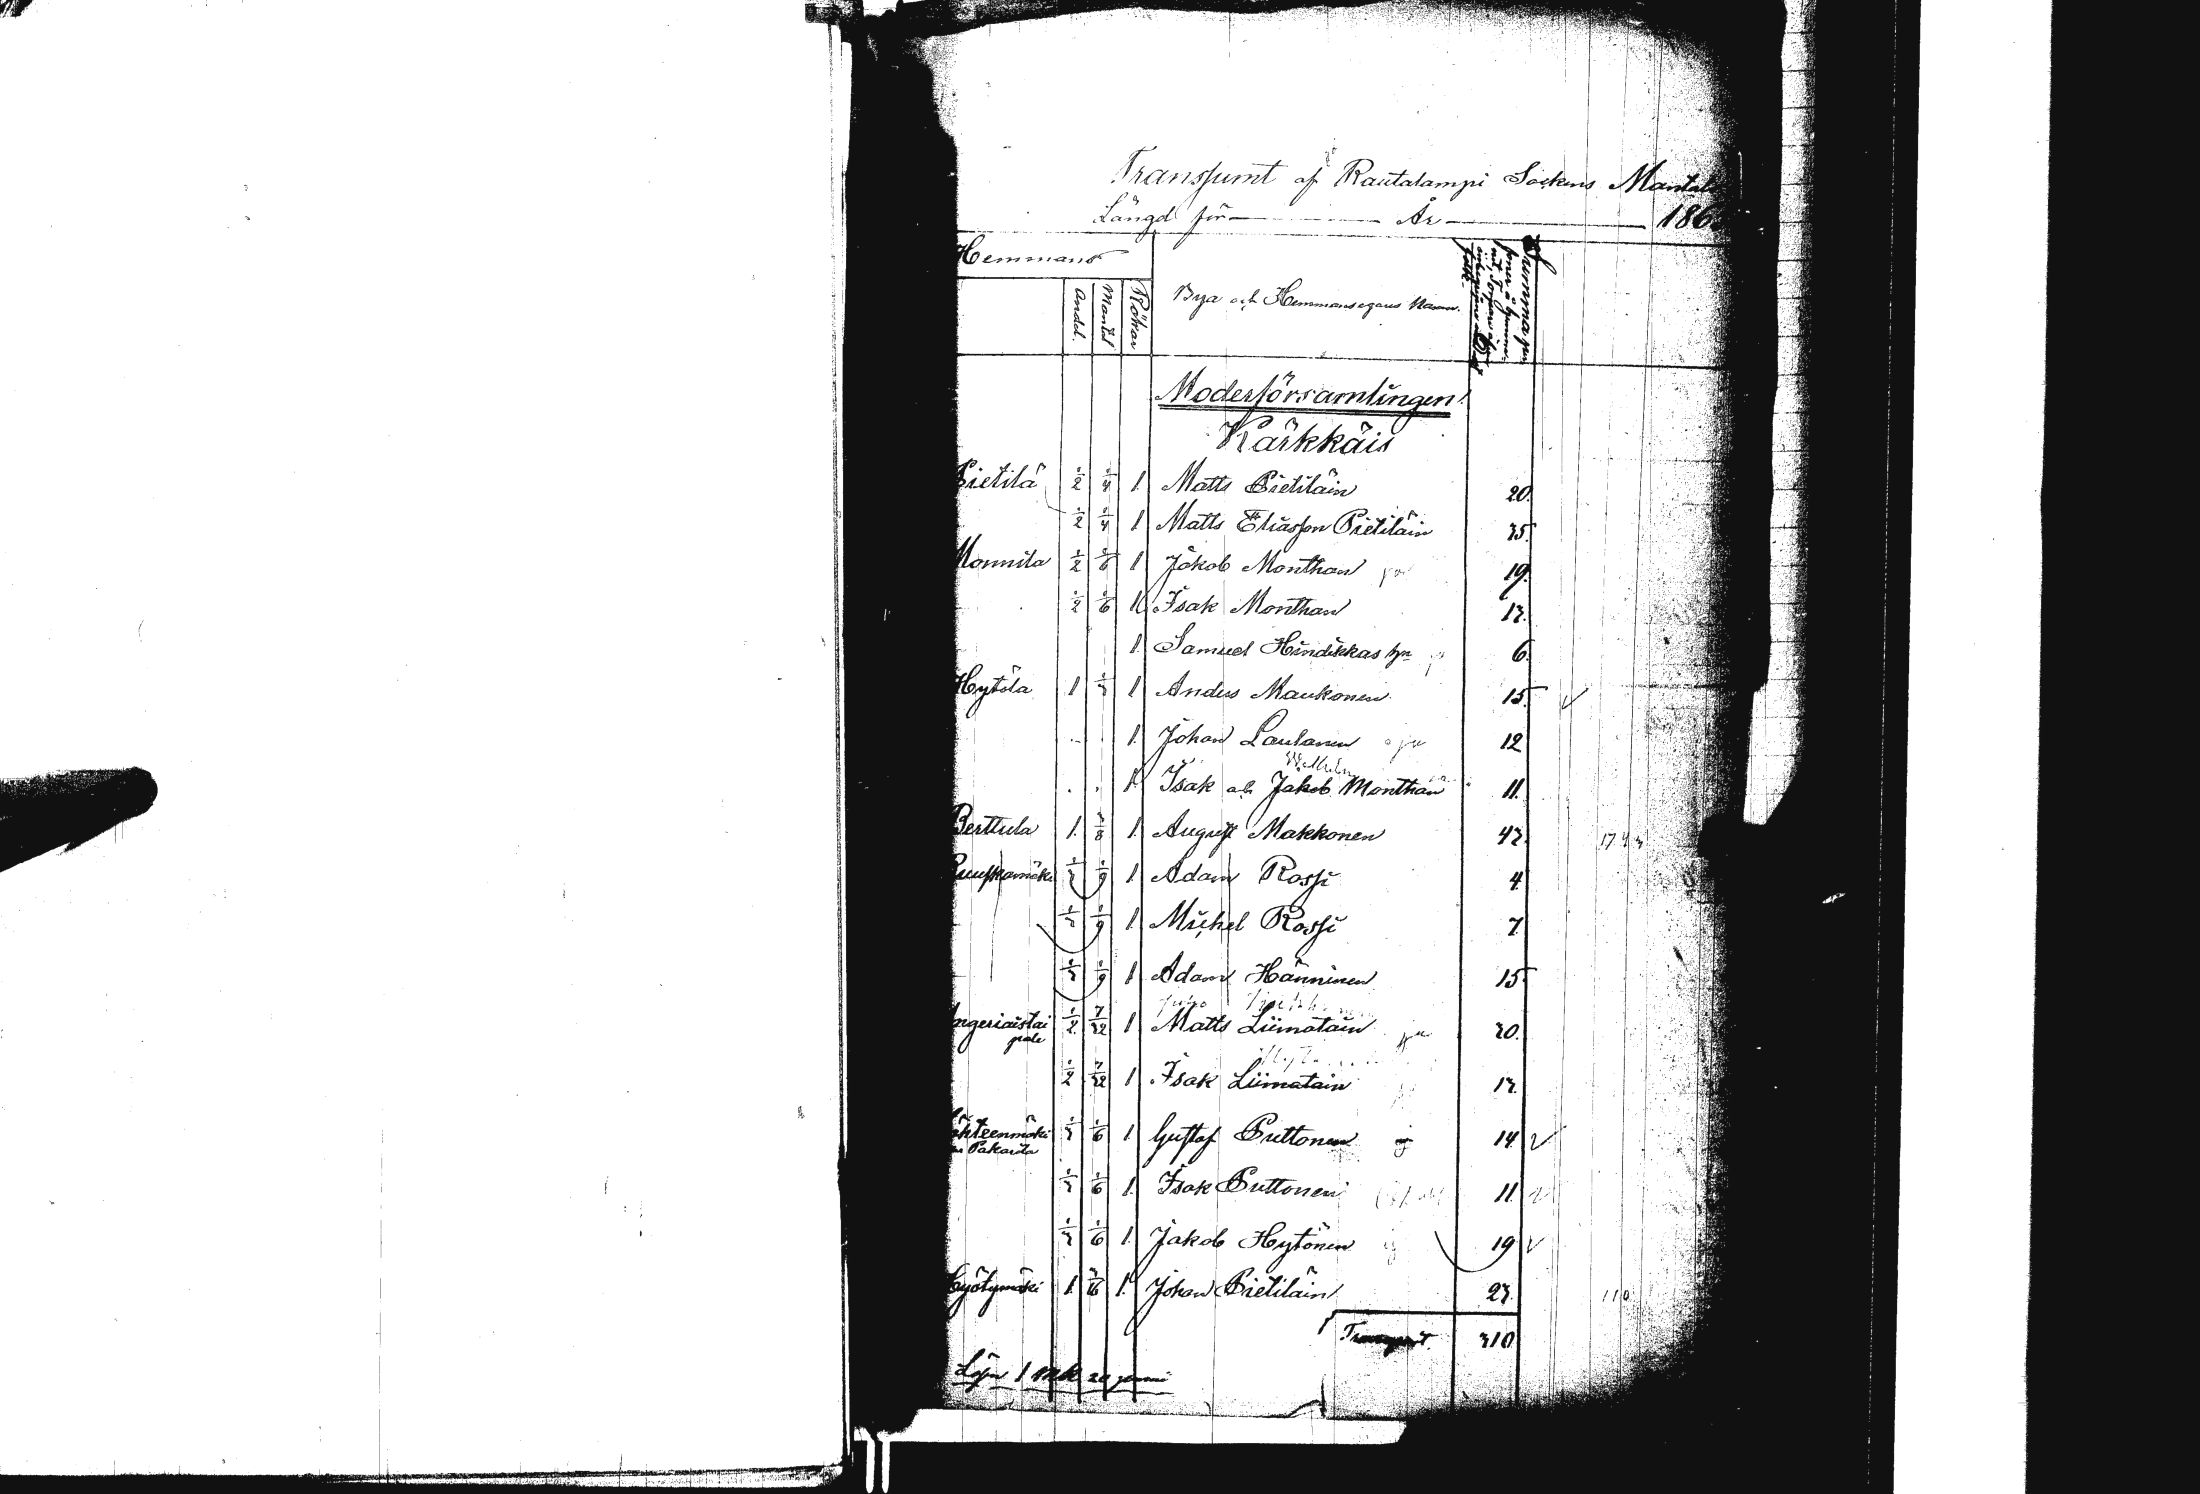 Transsumt af Rautalampi Sockens Mantals
Längd för — År — 186
Hemmans
Andel. Mantal Rökar
Bya och Hemmansegares Namn.
Summa per
Moderförsamlingen
Kärkkäis
Pietilä 1/2 1/4 1. Matts Pietiläin 20.
1/2 1/4 1 Matts Eliasson Pietiläin 35.
Monnila 1/2 1/6 1 Jakob Monthan 19.
1/2 1/6 1 Isak Monthan 13.
1. Samuel Hindikkas 6.
Hytölä 1 1/3 1 Anders Maukonen 15.
1. Johan Laulanen 12
Wilhelm
1. Isak och Jakob Monthan 11.
Berttula 1. 3/8 1. August Makkonen 43.
Ruuskamäki 1/3 1/9 1. Adam Rossi 4.
1/3 1/9 1 Michel Rossi 7.
1/3 1/9 1 Adam Hänninen 15.
Angeriaistai
pale 1/2 7/32 1 Matts Liimatain 30.
1/2 7/32 1 Isak Liimatain 13.
Lähteenmäki
Pakarila 1/3 1/6 1. Gustaf Puttonen 14.
1/3 1/6 1. Isak Puttonen 11.
1/3 1/6 1. Jakob Hytönen 19
Työlymäki 1. 3/16 1. Johan Pietiläin 23.
Transport. 310
Lön 1 mk 20 penni